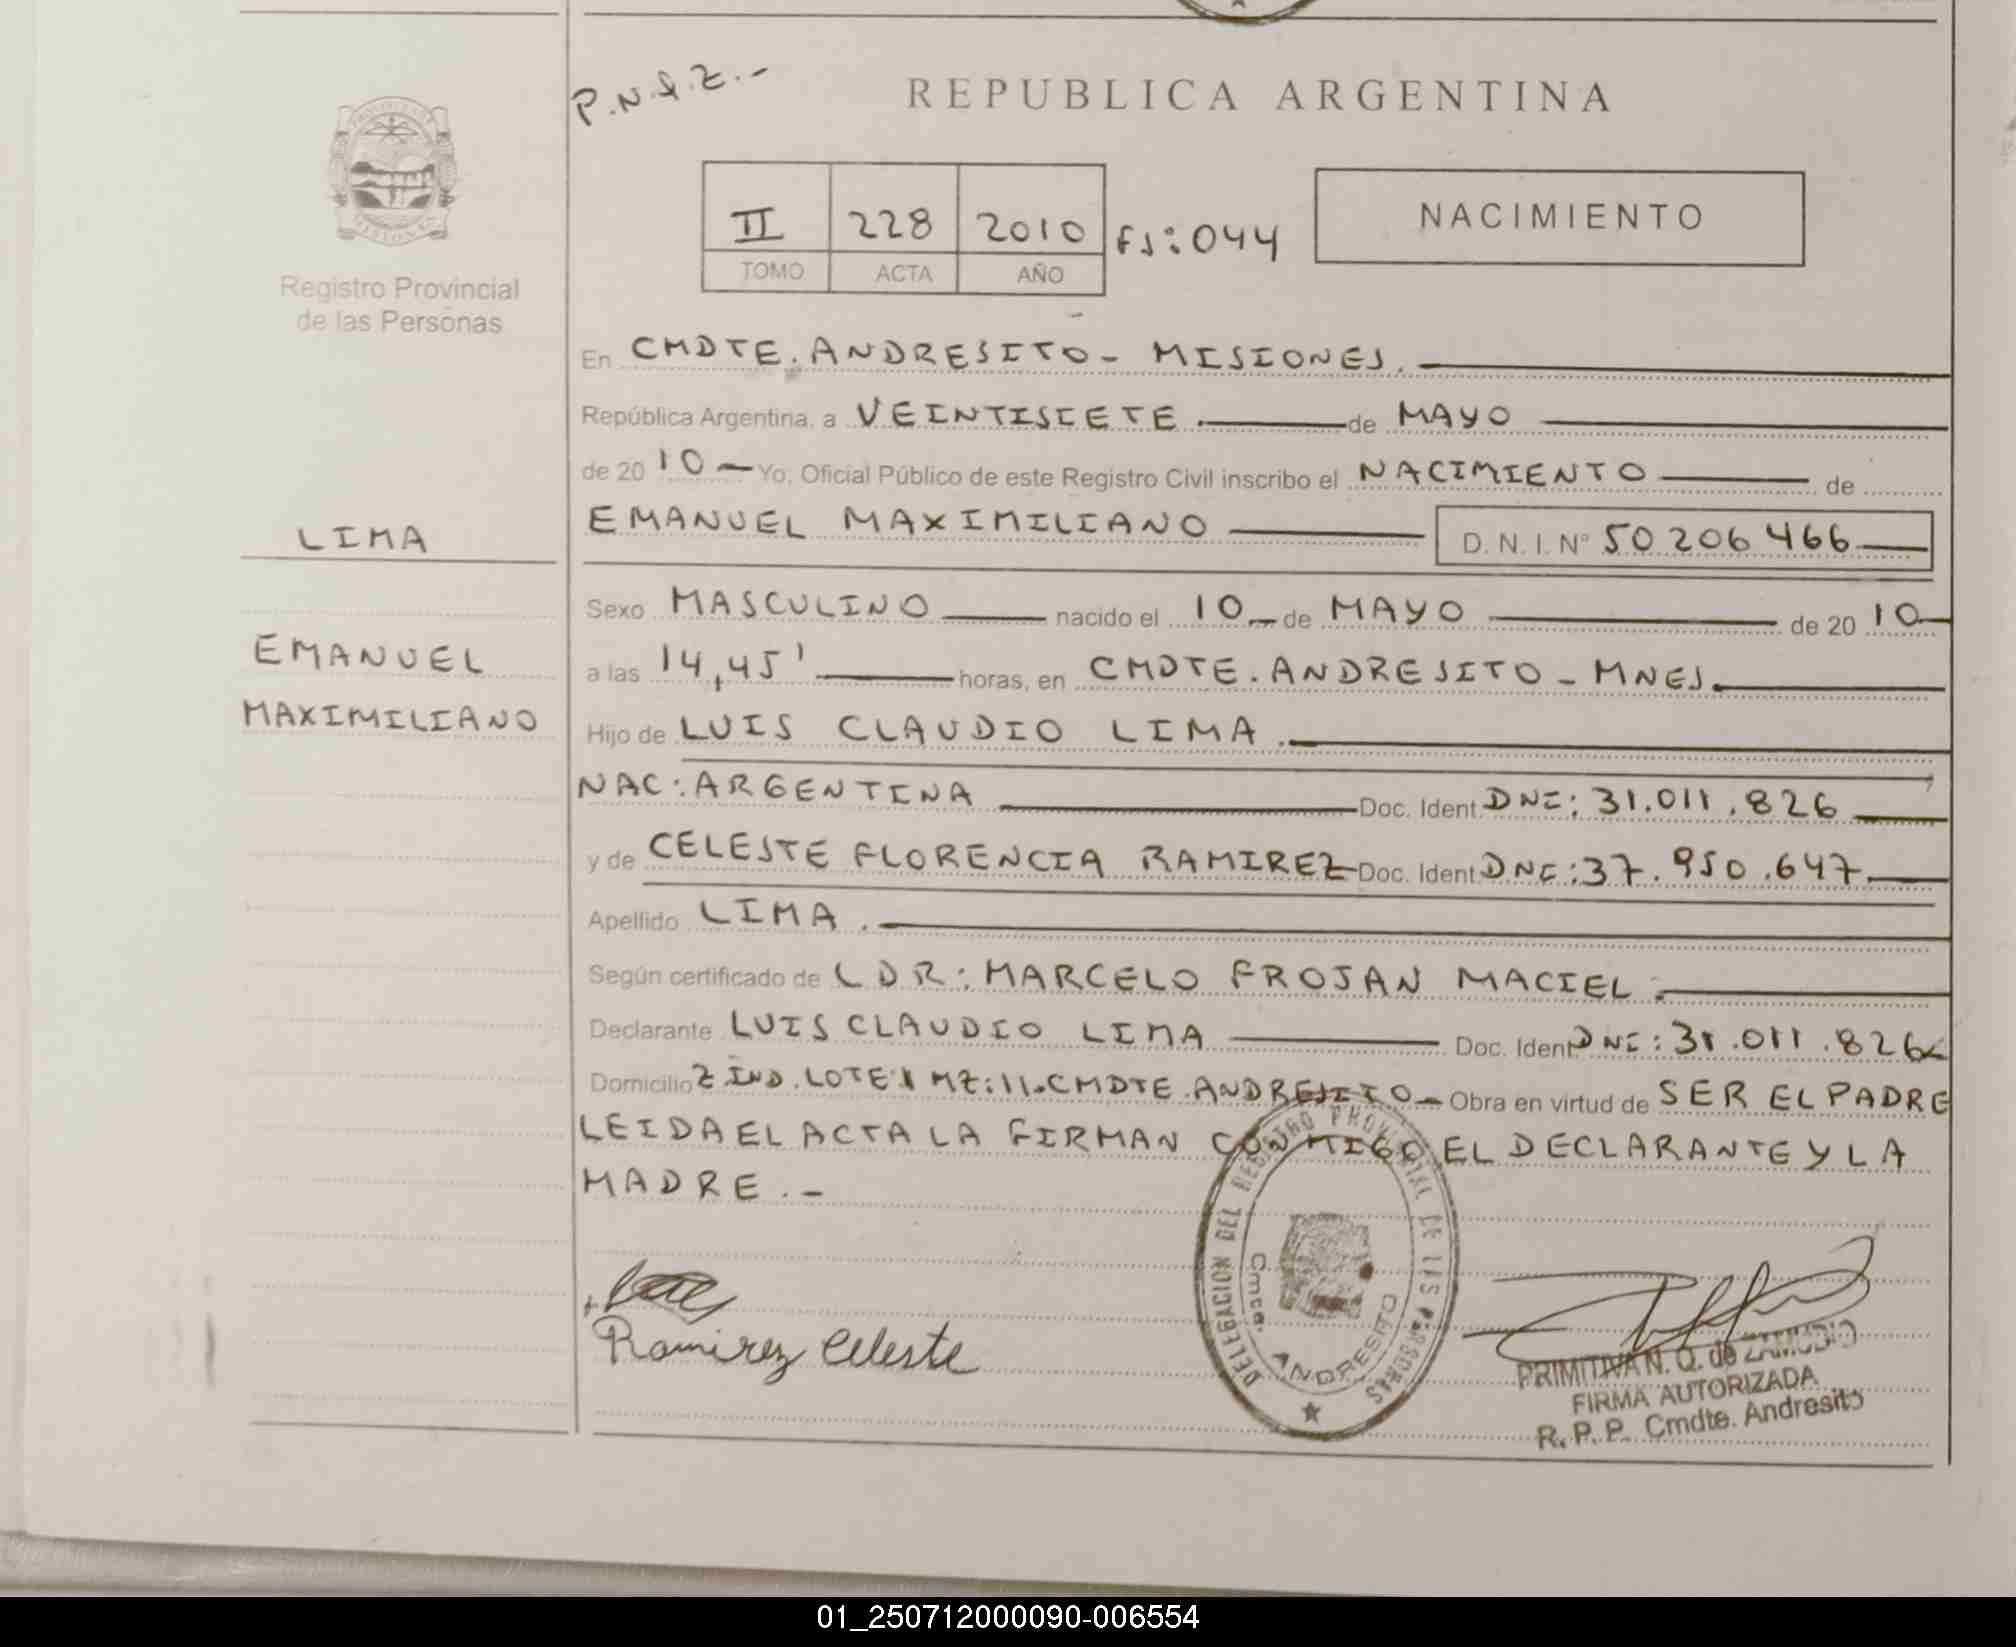 P.N.Q.Z.-
REPUBLICA ARGENTINA
II 228 2010 FS:044
TOMO ACTA AÑO
NACIMIENTO
PROVINCIA
MISIONES
Registro Provincial
de las Personas
En CMDTE. ANDRESITO - MISIONES.
República Argentina, a VEINTISIETE. de MAYO
de 20 10 Yo, Oficial Público de este Registro Civil inscribo el NACIMIENTO de
EMANUEL MAXIMILIANO D. N. I. Nº 50 206 466
LIMA
EMANUEL
MAXIMILIANO
Sexo MASCULINO nacido el 10 de MAYO de 20 10
a las 14,45' horas, en CMDTE. ANDRESITO - MNES.
Hijo de LUIS CLAUDIO LIMA.
NAC: ARGENTINA Doc. Ident. DNI: 31.011.826
y de CELESTE FLORENCIA RAMIREZ Doc. Ident. DNI: 37.950.647.
Apellido LIMA.
Según certificado de L DR: MARCELO FROJAN MACIEL.
Declarante LUIS CLAUDIO LIMA Doc. Ident. DNI: 31.011.826
Domicilio Z IND. LOTE 1 MZ: 11. CMDTE. ANDRESITO - Obra en virtud de SER EL PADRE
LEIDA EL ACTA LA FIRMAN CONMIGO EL DECLARANTE Y LA
MADRE. -
Ramirez Celeste
DELEGACION DEL REGISTRO PROVINCIAL DE LAS PERSONAS
Cmte. ANDRESITO
PRIMITIVA N. Q. de ZAMUDIO
FIRMA AUTORIZADA
R. P. P. Cmdte. Andresito
01_250712000090-006554